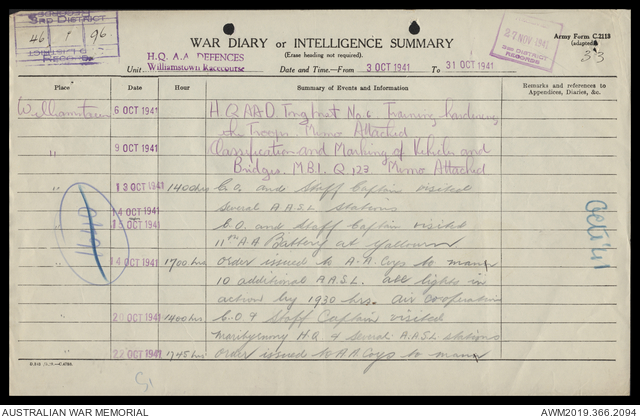 3RD DISTRICT
46 1 96
RECORDS
WAR DIARY or INTELLIGENCE SUMMARY
(Erase heading not required).
27 NOV 1941
3RD DISTRICT
RECORDS
Army Form C.2118
(adapted)
33
H.Q. A.A. DEFENCES
Unit Williamstown Racecourse Date and Time.—From 3 OCT 1941 To 31 OCT 1941
Place Date Hour Summary of Events and Information Remarks and references to Appendices, Diaries, &c.
Williamstown 6 OCT 1941 H.Q. A.A.D. Trng Inst No 6. Training, hardening
the Troops. Mimo Attached
" 9 OCT 1941 Classification and Marking of Vehicles and
Bridges. M.B.I. Q 123 Mimo Attached
" 13 OCT 1941 1400 hrs C.O. and Staff Captain visited
14 OCT 1941 several A.A.S.L. Stations
" 15 OCT 1941 C.O. and Staff Captain visited
11th A.A. Battery at Yallourn
" 14 OCT 1941 1700 hrs Order issued to A.A. Coys to man
10 additional A.A.S.L. all lights in
action by 1930 hrs. Air cooperation
20 OCT 1941 1400 hrs C.O. & Staff Captain visited
Maribyrnong H.Q. & several A.A.S.L. stations
22 OCT 1941 1745 hrs Order issued to A.A. Coys to man
Oct '41
AUSTRALIAN WAR MEMORIAL AWM2019.366.2094